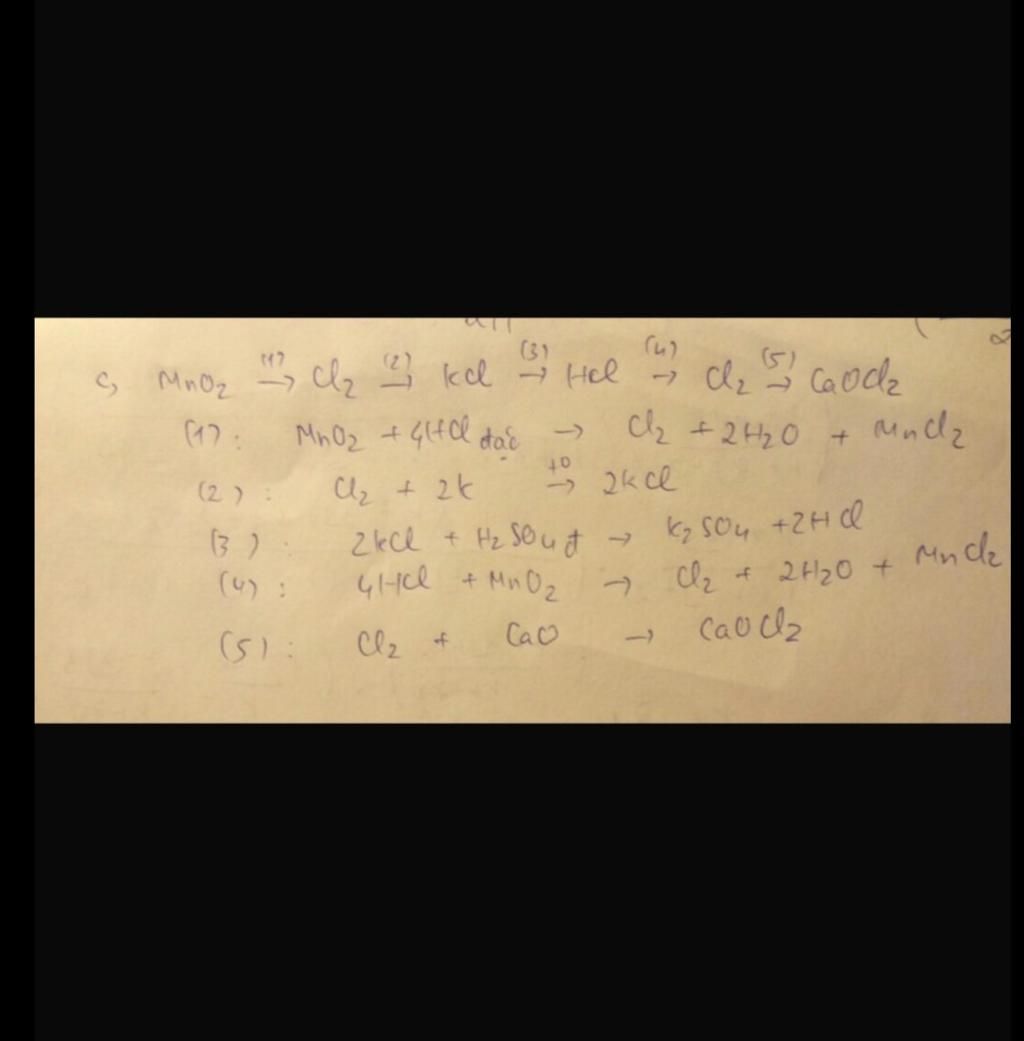 c, MnO2 (1)→ Cl2 (2)→ KCl (3)→ HCl (4)→ Cl2 (5)→ CaOCl2
(1): MnO2 + 4HCl đặc → Cl2 + 2H2O + MnCl2
(2): Cl2 + 2K t0→ 2KCl
(3): 2KCl + H2SO4 đ → K2SO4 + 2HCl
(4): 4HCl + MnO2 → Cl2 + 2H2O + MnCl2
(5): Cl2 + CaO → CaOCl2